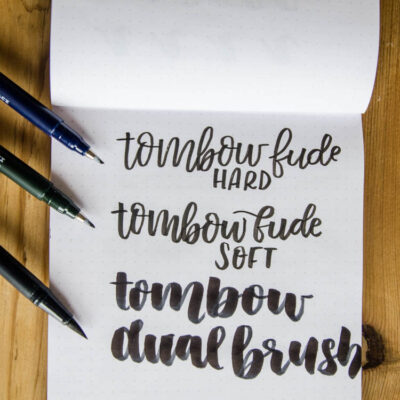 tombow fude
HARD
tombow fude
SOFT
tombow
dual brush